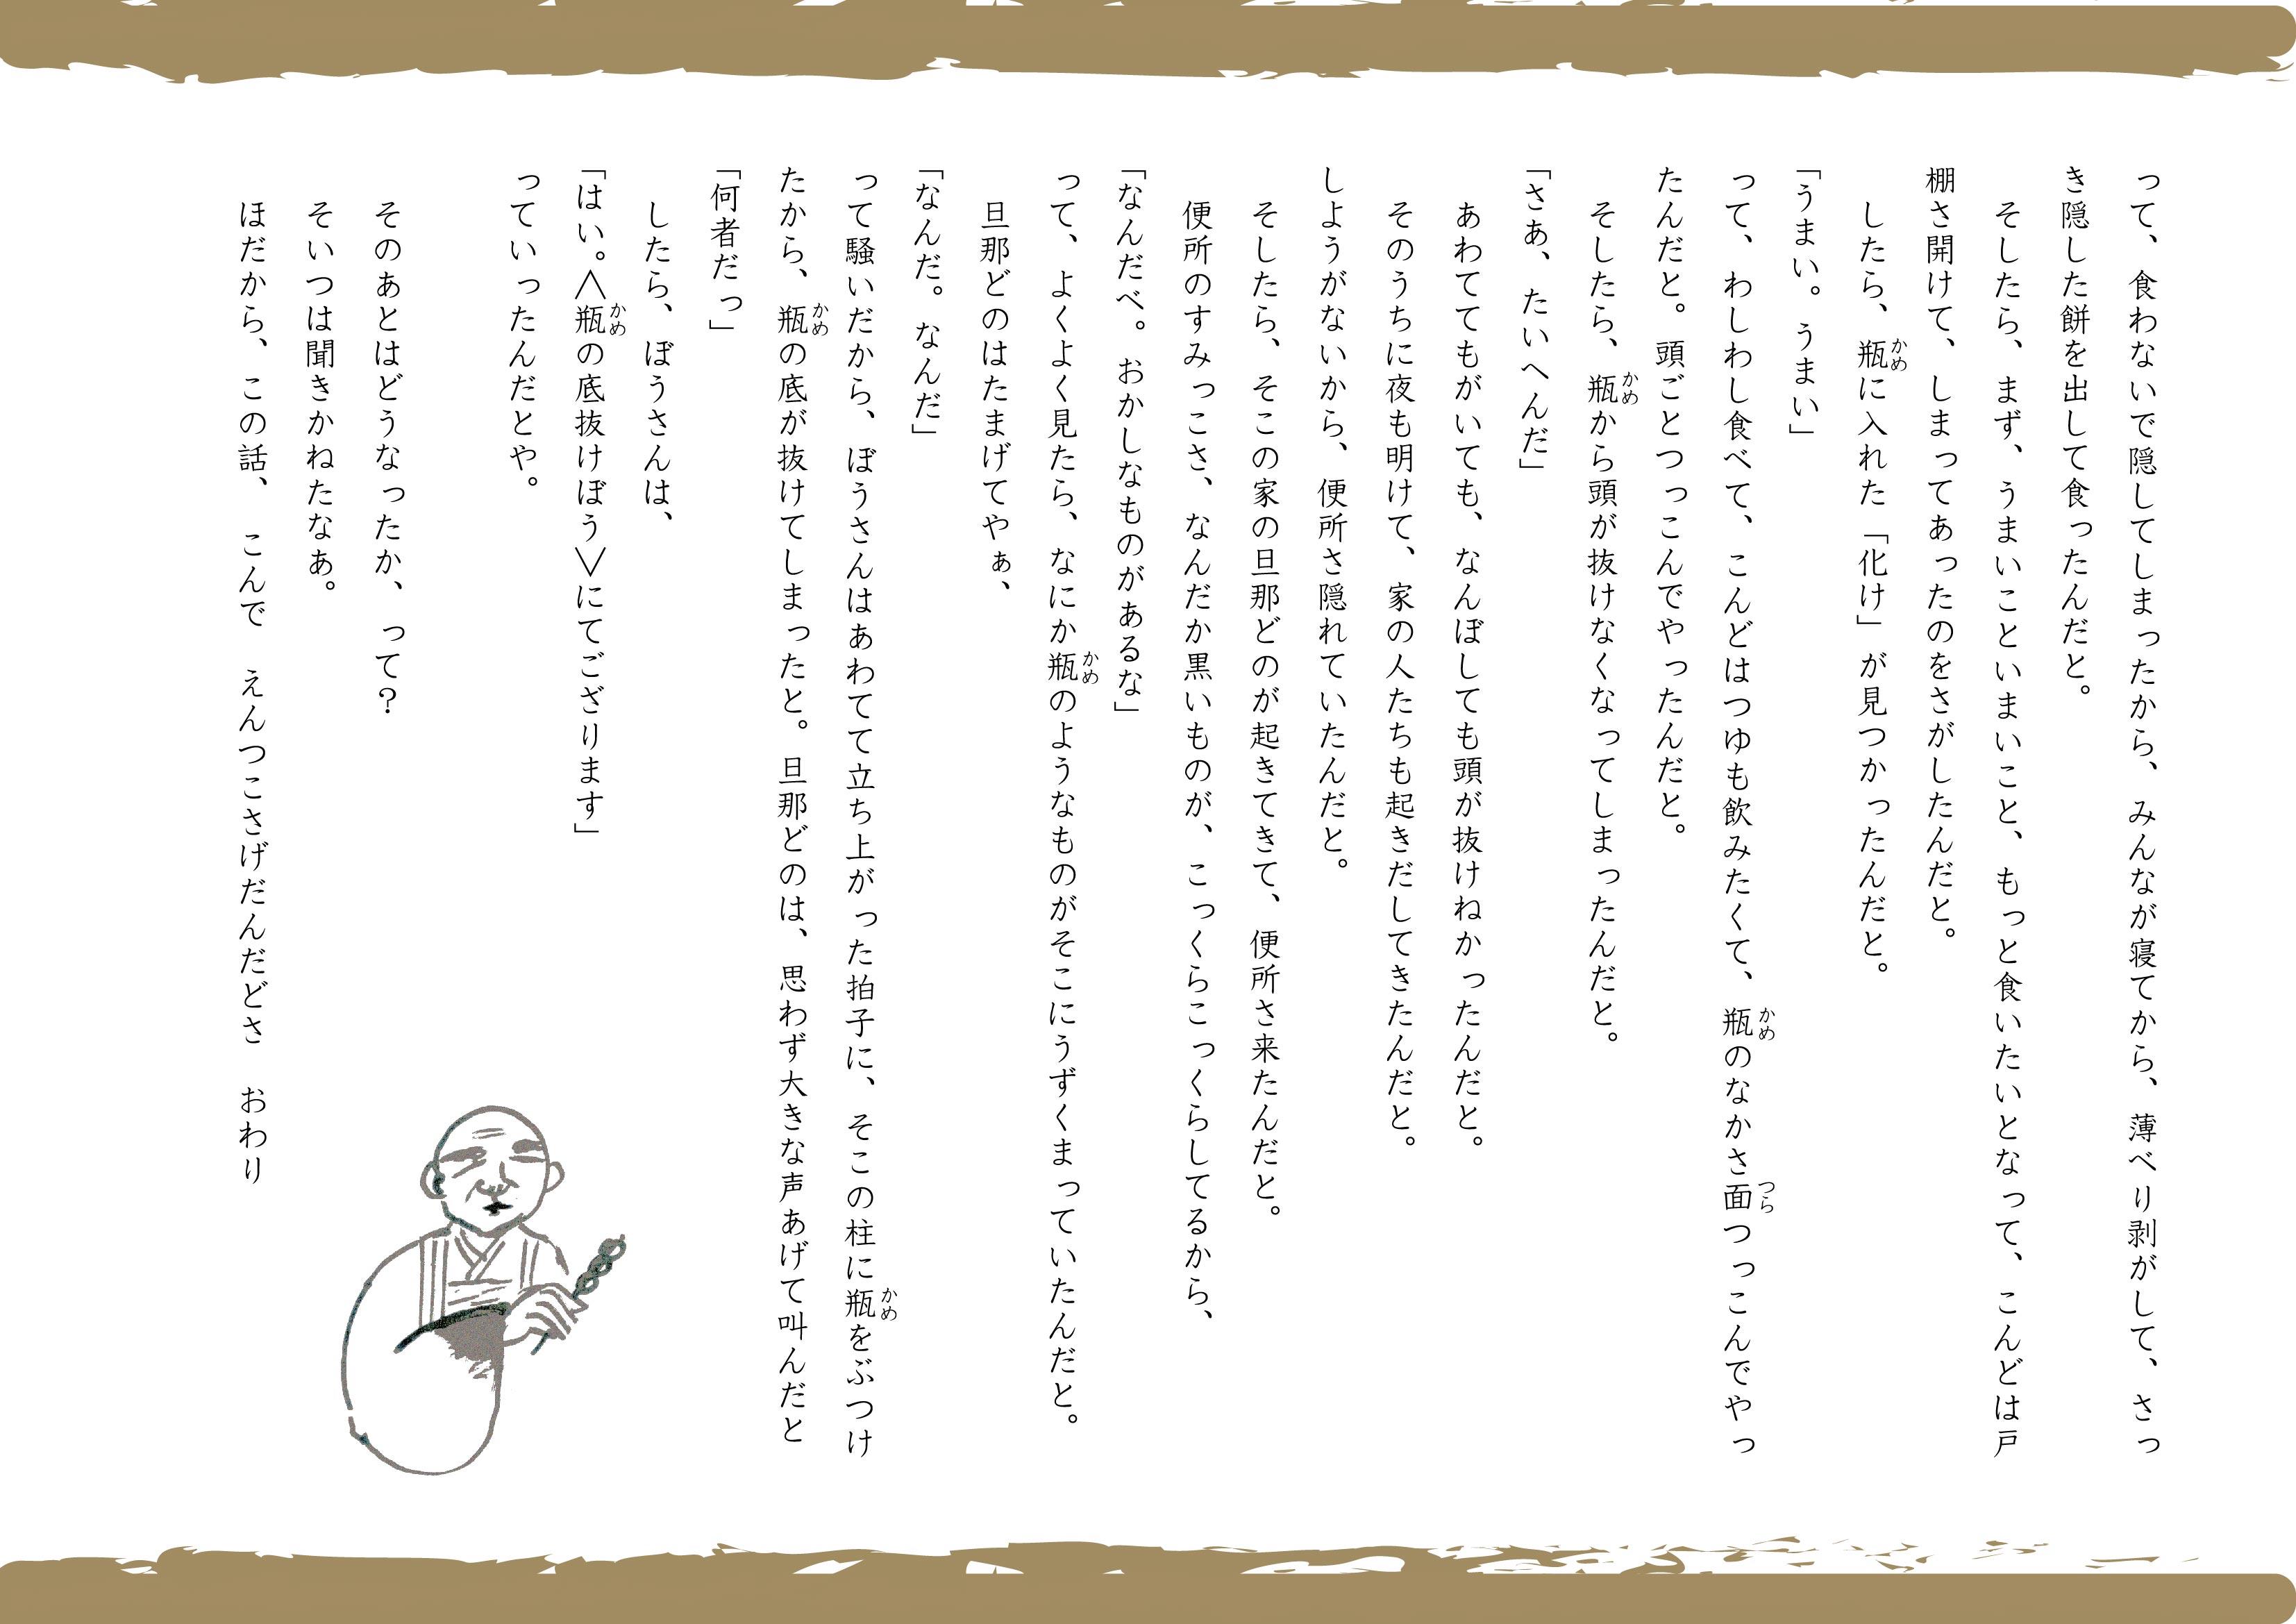 って、食わないで隠してしまったから、みんなが寝てから、薄べり剥がして、さっ
き隠した餅を出して食ったんだと。
そしたら、まず、うまいこといまいこと、もっと食いたいとなって、こんどは戸
棚さ開けて、しまってあったのをさがしたんだと。
したら、瓶に入れた「化け」が見つかったんだと。
「うまい。うまい」
って、わしわし食べて、こんどはつゆも飲みたくて、瓶のなかさ面つっこんでやっ
たんだと。頭ごとつっこんでやったんだと。
そしたら、瓶から頭が抜けなくなってしまったんだと。
「さあ、たいへんだ」
あわててもがいても、なんぼしても頭が抜けねかったんだと。
そのうちに夜も明けて、家の人たちも起きだしてきたんだと。
しようがないから、便所さ隠れていたんだと。
そしたら、そこの家の旦那どのが起きてきて、便所さ来たんだと。
便所のすみっこさ、なんだか黒いものが、こっくらこっくらしてるから、
「なんだべ。おかしなものがあるな」
って、よくよく見たら、なにか瓶のようなものがそこにうずくまっていたんだと。
旦那どのはたまげてやぁ、
「なんだ。なんだ」
って騒いだから、ぼうさんはあわてて立ち上がった拍子に、そこの柱に瓶をぶつけ
たから、瓶の底が抜けてしまったと。旦那どのは、思わず大きな声あげて叫んだと
「何者だっ」
したら、ぼうさんは、
「はい。＜瓶の底抜けぼう＞にてござります」
っていったんだとや。
そのあとはどうなったか、って？
そいつは聞きかねたなあ。
ほだから、この話、　こんで　えんつこさげだんだどさ　おわり